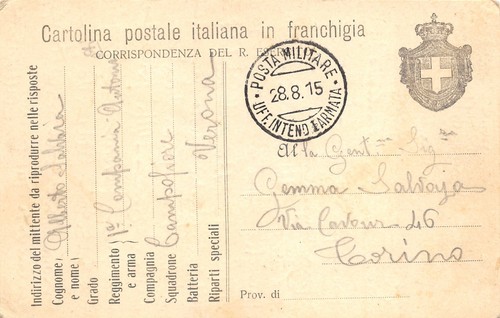 Cartolina postale italiana in franchigia
CORRISPONDENZA DEL R. ESERCITO
POSTA MILITARE
28.8.15
UFF. INTEND I ARMATA
Indirizzo del mittente da riprodurre nelle risposte
Cognome
e nome Alberto
Grado
Reggimento
e arma 1ª Compania
Compagnia
Squadrone Campofiore
Batteria
Riparti speciali Verona
Alla Gent.ma Sig.
Gemma Salvaja
Via Cavour 46
Torino
Prov. di